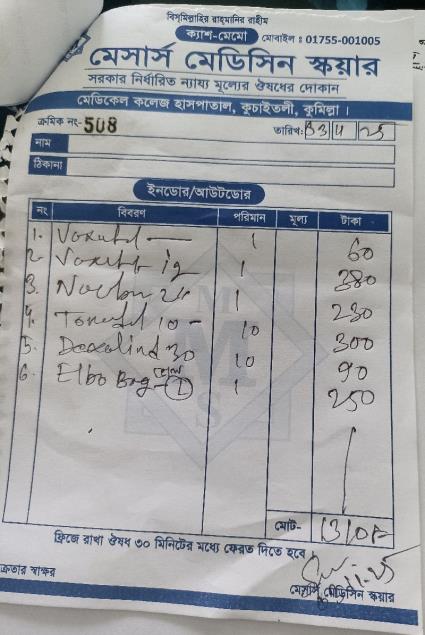 বিস্‌মিল্লাহির রাহ্‌মানির রাহীম
ক্যাশ-মেমো মোবাইল : 01755-001005
মেসার্স মেডিসিন স্কয়ার
সরকার নির্ধারিত ন্যায্য মূল্যের ঔষধের দোকান
মেডিকেল কলেজ হাসপাতাল, কুচাইতলী, কুমিল্লা ।
ক্রমিক নং- 508 তারিখ: 25
নাম
ঠিকানা
ইনডোর/আউটডোর
নং বিবরণ পরিমান মূল্য টাকা
1. 1 60
2. 1 380
3. 1 230
4. 10 10 300
5. 30 10 90
6. Elbo Bag 1 250
মোট- 1310/-
ফ্রিজে রাখা ঔষধ ৩০ মিনিটের মধ্যে ফেরত দিতে হবে।
ক্রেতার স্বাক্ষর মেসার্স মেডিসিন স্কয়ার